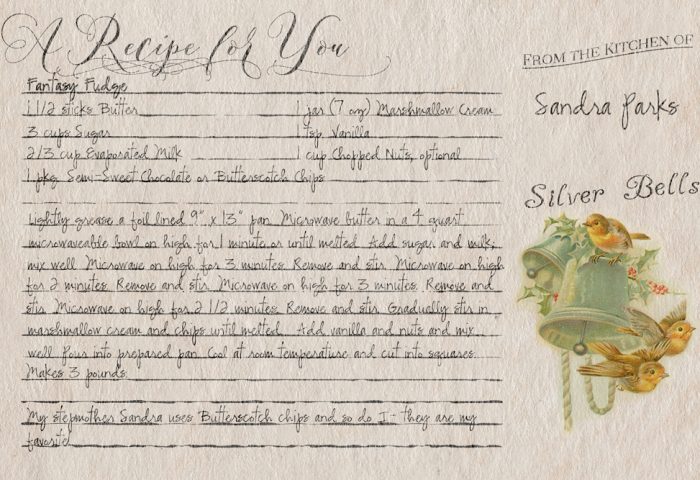 A Recipe for You
FROM THE KITCHEN OF
Sandra Parks
Silver Bells
Fantasy Fudge
1 1/2 sticks Butter
1 jar (7 oz) Marshmallow Cream
3 cups Sugar
1 tsp Vanilla
2/3 cup Evaporated Milk
1 cup Chopped Nuts, optional
1 pkg Semi-Sweet Chocolate or Butterscotch Chips
Lightly grease a foil lined 9" x 13" pan. Microwave butter in a 4 quart
microwaveable bowl on high for 1 minute or until melted. Add sugar and milk;
mix well. Microwave on high for 3 minutes. Remove and stir. Microwave on high
for 2 minutes. Remove and stir. Microwave on high for 3 minutes. Remove and
stir. Microwave on high for 2 1/2 minutes. Remove and stir. Gradually stir in
marshmallow cream and chips until melted. Add vanilla and nuts and mix
well. Pour into prepared pan. Cool at room temperature and cut into squares.
Makes 3 pounds.
My stepmother Sandra uses Butterscotch chips and so do I - they are my
favorite!